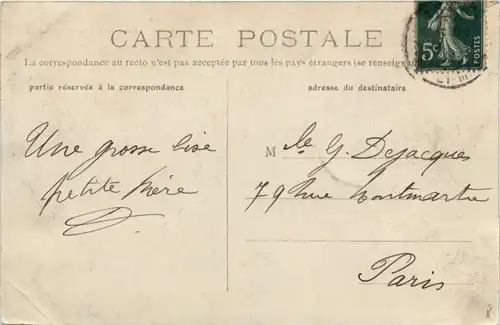 CARTE POSTALE
La correspondance au recto n'est pas acceptée par tous les pays étrangers (se renseign
partie réservée à la correspondance
adresse du destinataire
5c
POSTES
Une grosse bise
petite Mère
Mlle G. Dejacques
79 Rue Montmartre
Paris